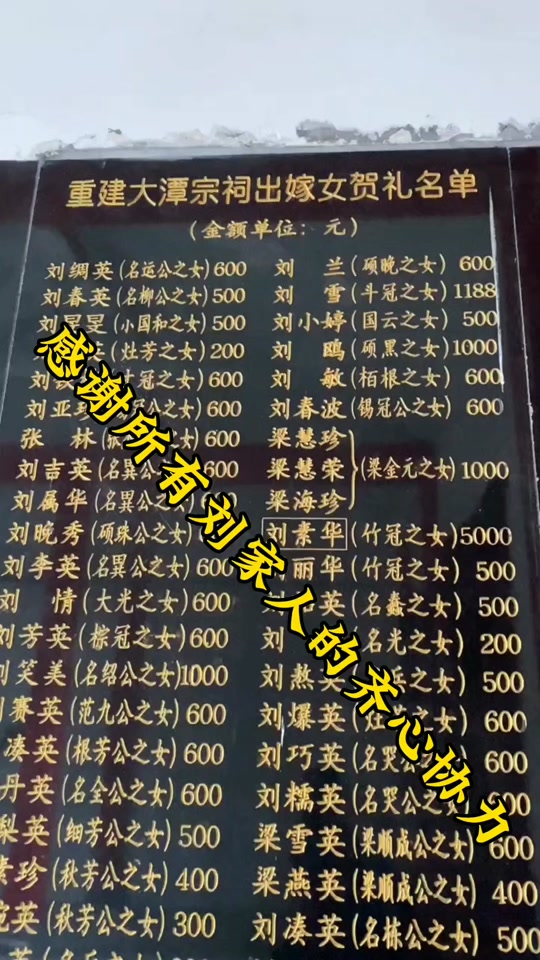 重建大潭宗祠出嫁女贺礼名单
(金额单位：元)
刘绸英(名运公之女)600
刘春英(名柳公之女)500
刘旻旻(小国和之女)500
(灶芳之女)200
刘 冠之女)600
刘亚 冠公之女)600
张 林 公之女)600
刘吉英(名異公 600
刘属华(名異公之女)
刘晚秀(硕珠公之女)
刘李英(名異公之女)600
刘 情(大光之女)600
刘芳英(棕冠之女)600
刘笑美(名绍公之女)1000
赛英(范九公之女)600
凑英(根芳公之女)600
丹英(名全公之女)600
梨英(细芳公之女)500
素珍(秋芳公之女)400
英(秋芳公之女)300
刘 兰(硕晚之女)600
刘 雪(斗冠之女)1188
刘小婷(国云之女)500
刘 鸥(硕黑之女)1000
刘 敏(栢根之女)600
刘春波(锡冠公之女)600
梁慧珍
梁慧荣(梁金元之女)1000
梁海珍
刘素华(竹冠之女)5000
丽华(竹冠之女)500
英(名鑫之女)500
刘 名光之女)200
刘熬 之女)500
刘爆英( 之女)600
刘巧英(名哭公 600
刘糯英(名哭公之 600
梁雪英(梁顺成公之女)600
梁燕英(梁顺成公之女)400
刘凑英(名栋公之女)500
感谢所有刘家人的齐心协力